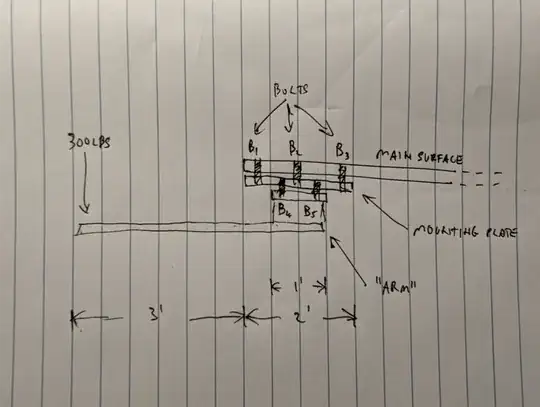 BOLTS
300LBS
B1 B2 B3
MAIN SURFACE
B4 B5
MOUNTING PLATE
"ARM"
1'
3' 2'